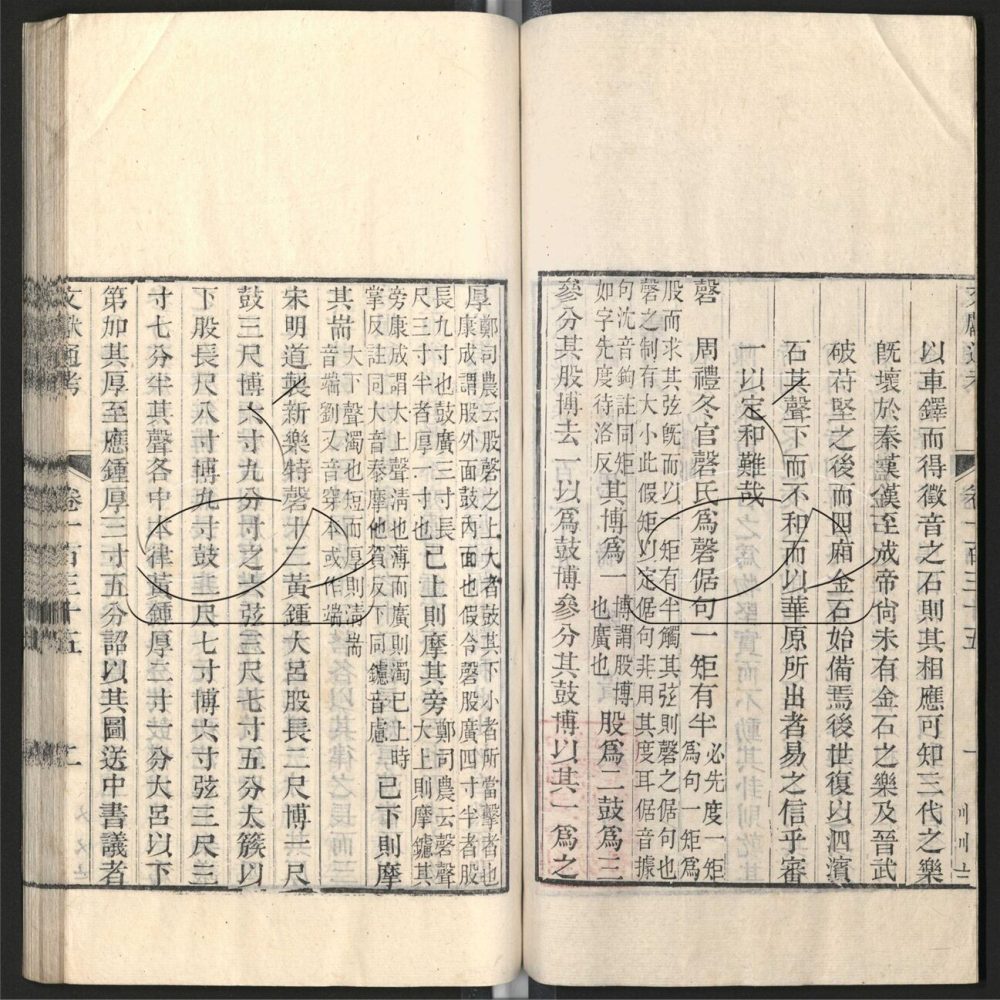 以車鐸而得徵音之石則其相應可知三代之樂
既壞於秦漢漢至成帝尙未有金石之樂及晉武
破苻堅之後而四廂金石始備焉後世復以泗濱
石其聲下而不和而以華原所出者易之信乎審
一以定和難哉
磬　周禮冬官磬氏爲磬倨句一矩有半必先度一矩
爲句一矩爲
股而求其弦旣而以一矩有半觸其弦則磬之倨句也
磬之制有大小此假矩以定倨句非用其度耳倨音據
句沈音鉤註同矩
如字先度待洛反其博爲一博謂股博
也廣也股爲二鼓爲三
參分其股博去一以爲鼓博參分其鼓博以其一爲之
厚鄭司農云股磬之上大者鼓其下小者所當擊者也
康成謂股外面鼓內面也假令磬股廣四寸半者股
長九寸也鼓廣三寸長
尺三寸半者厚一寸也已上則摩其旁鄭司農云磬聲
大上則摩鑢其
旁康成謂大上聲淸也薄而廣則濁已上時
掌反註同大音泰摩他賀反下同鑢音慮已下則摩
其耑大下聲濁也短而厚則淸耑
音端劉又音穿本或作端
宋明道製新樂特磬十二黃鍾大呂股長二尺博一尺
鼓三尺博六寸九分寸之六弦三尺七寸五分太簇以
下股長尺八寸博九寸鼓二尺七寸博六寸弦三尺三
寸七分半其聲各中本律黃鍾厚二寸一分大呂以下
第加其厚至應鍾厚三寸五分詔以其圖送中書議者
文獻通考
卷一百三十五
二